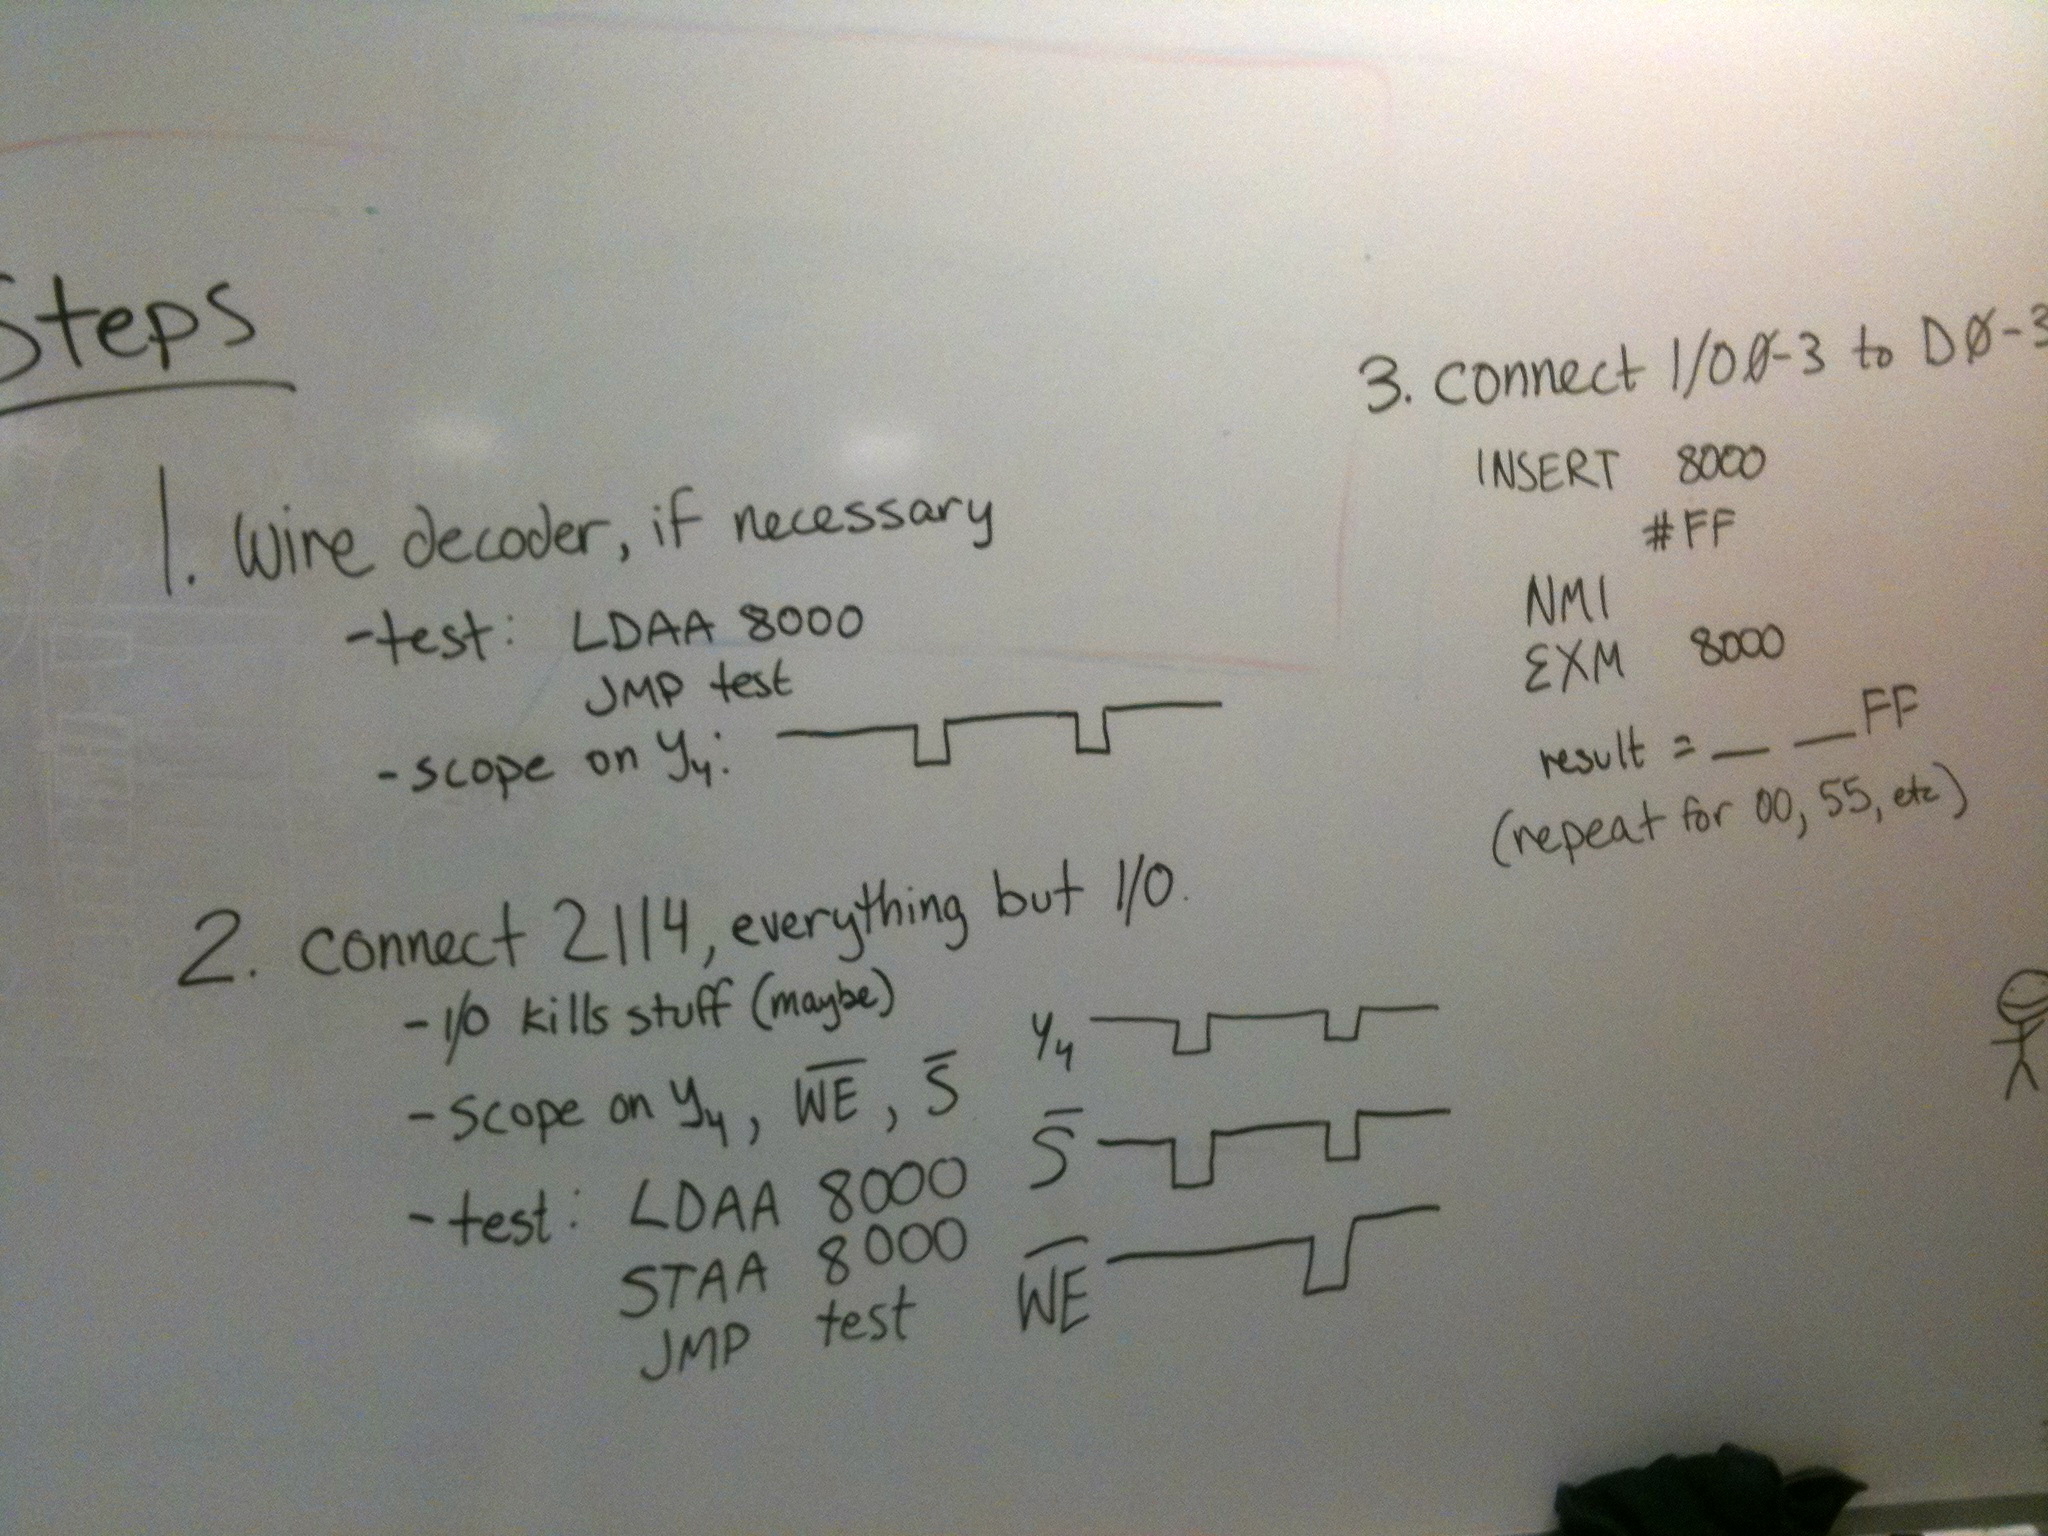 Steps
1. Wire decoder, if necessary
-test: LDAA 8000
JMP test
-scope on Y4:
2. connect 2114, everything but I/O.
-I/O kills stuff (maybe)
-scope on Y4, W̅E̅, S̅
-test: LDAA 8000
STAA 8000
JMP test
Y4
S̅
W̅E̅
3. connect I/O0-3 to D0-3
INSERT 8000
#FF
NMI
EXM 8000
result = _ _ FF
(repeat for 00, 55, etc)